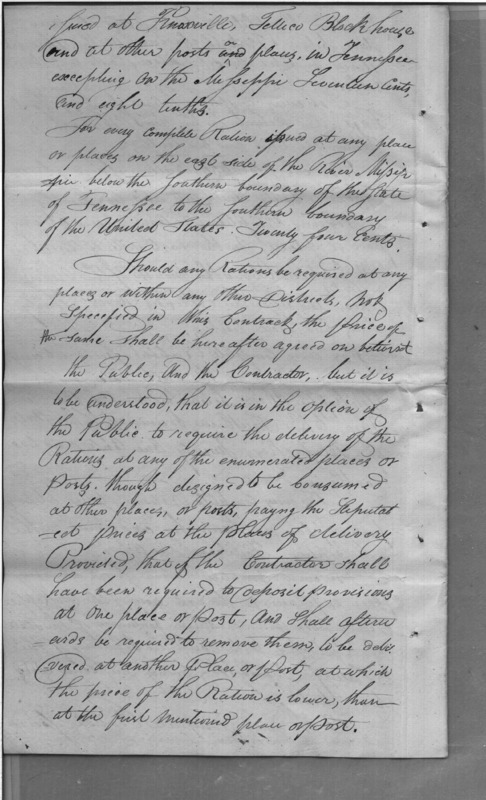 issued at Knoxville, Tellico Block house
and at other posts and places, in Tennessee
excepting on the Missippi Seventeen Cents,
and eight tenths.
For every complete Ration issued at any place
or places on the east side of the River Missis-
sippi below the Southern boundary of the State
of Tennessee to the Southern boundary
of the United States. Twenty four Cents.
Should any Rations be required at any
places or within any other Districts, not
Specefied in this Contract, the price of
the same shall be hereafter agreed on betwixt
the Public, and the Contractor,. but it is
to be understood, that it is in the option of
the Public. to require the delivery of the
Rations at any of the enumerated places or
Posts. though designed to be Consumed
at other places, or posts, payng the Steputat
=eot prices at the places of delivery
Provided, that if the Contractor shall
have been required to deposit provisions
at one place or Post, and shall afterw
=ards be required to remove them, to be deliv
=vered at another place, or post, at which
the price of the Ration is lower, than
at the first mentioned place or post.